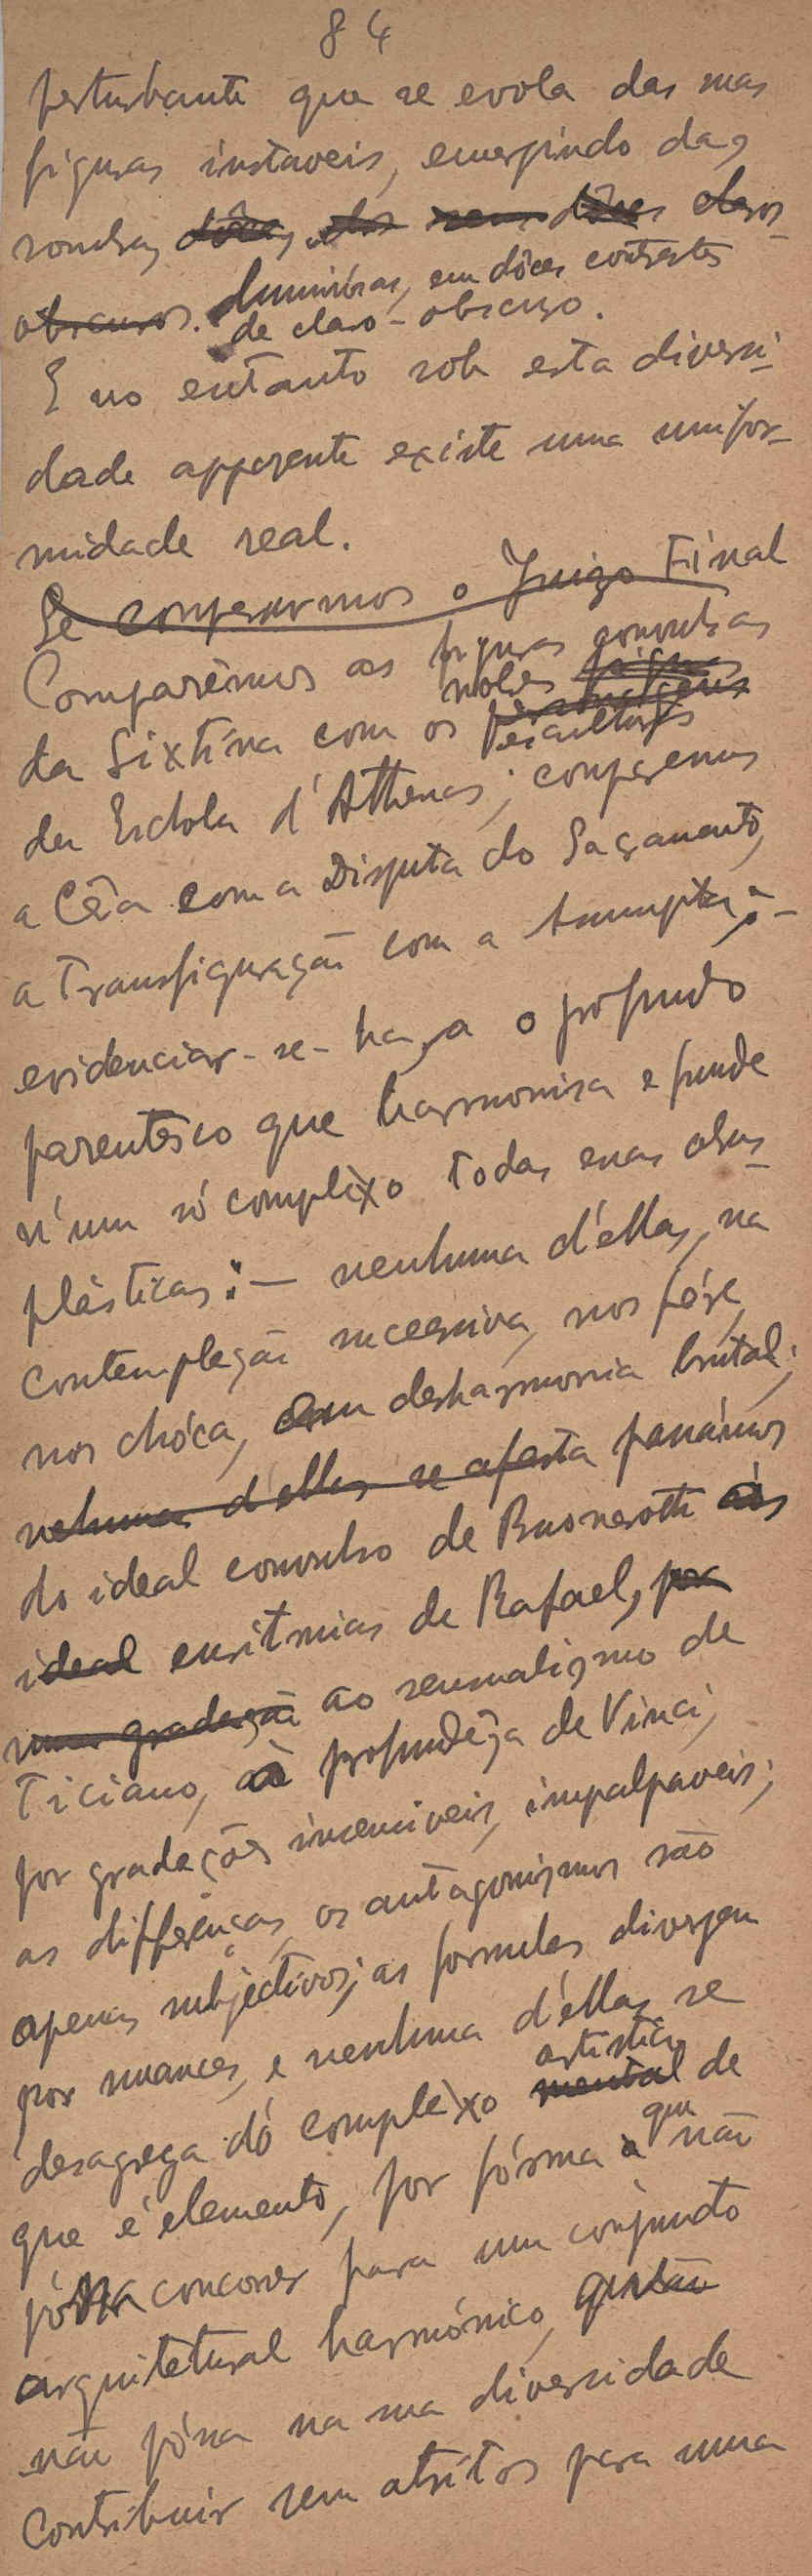 84
perturbante que se evola das suas
figuras instaveis, emergindo das
sombras dôces, dos seus dôces claros
obscuros. penumbras, em dôces contrastes
de claro-obscuro.
E no entanto sob esta diversi-
dade apparente existe uma unifor-
midade real.
Se compararmos o Juizo Final
Comparêmos as figuras convulsas
nobres figuras
da Sixtina com os personagens
esculturas
da Escóla d'Athenas; comparemos
a Cêa com a Disputa do Sacramento,
a Transfiguração com a Assumpção-
evidenciar-se-ha, a o profundo
parentesco que harmonisa e funde
n'um só complèxo todas essas obras
plàsticas: — nenhuma d'ellas, na
contemplação successiva, nos fére,
nos chóca, em desharmonia brutal;
nehuma d'ellas se afasta passâmos
do ideal convulso de Buonarotti às
ideal euritmias de Rafael, por
uma gradação ao sensualismo de
Ticiano, à profundeza de Vinci,
por gradações insensiveis, impalpaveis;
as differenças, os antagonismos são
apenas subjectivos; as formulas divergem
por nuances, e nenhuma d'ellas se
artistico
desagrega do complèxo mental de
que é elemento, por fórma a que não
póssa concorrer para um conjuncto
arquitetural harmónico, questão
não póssa na sua diversidade
contribuir sem atritos para uma